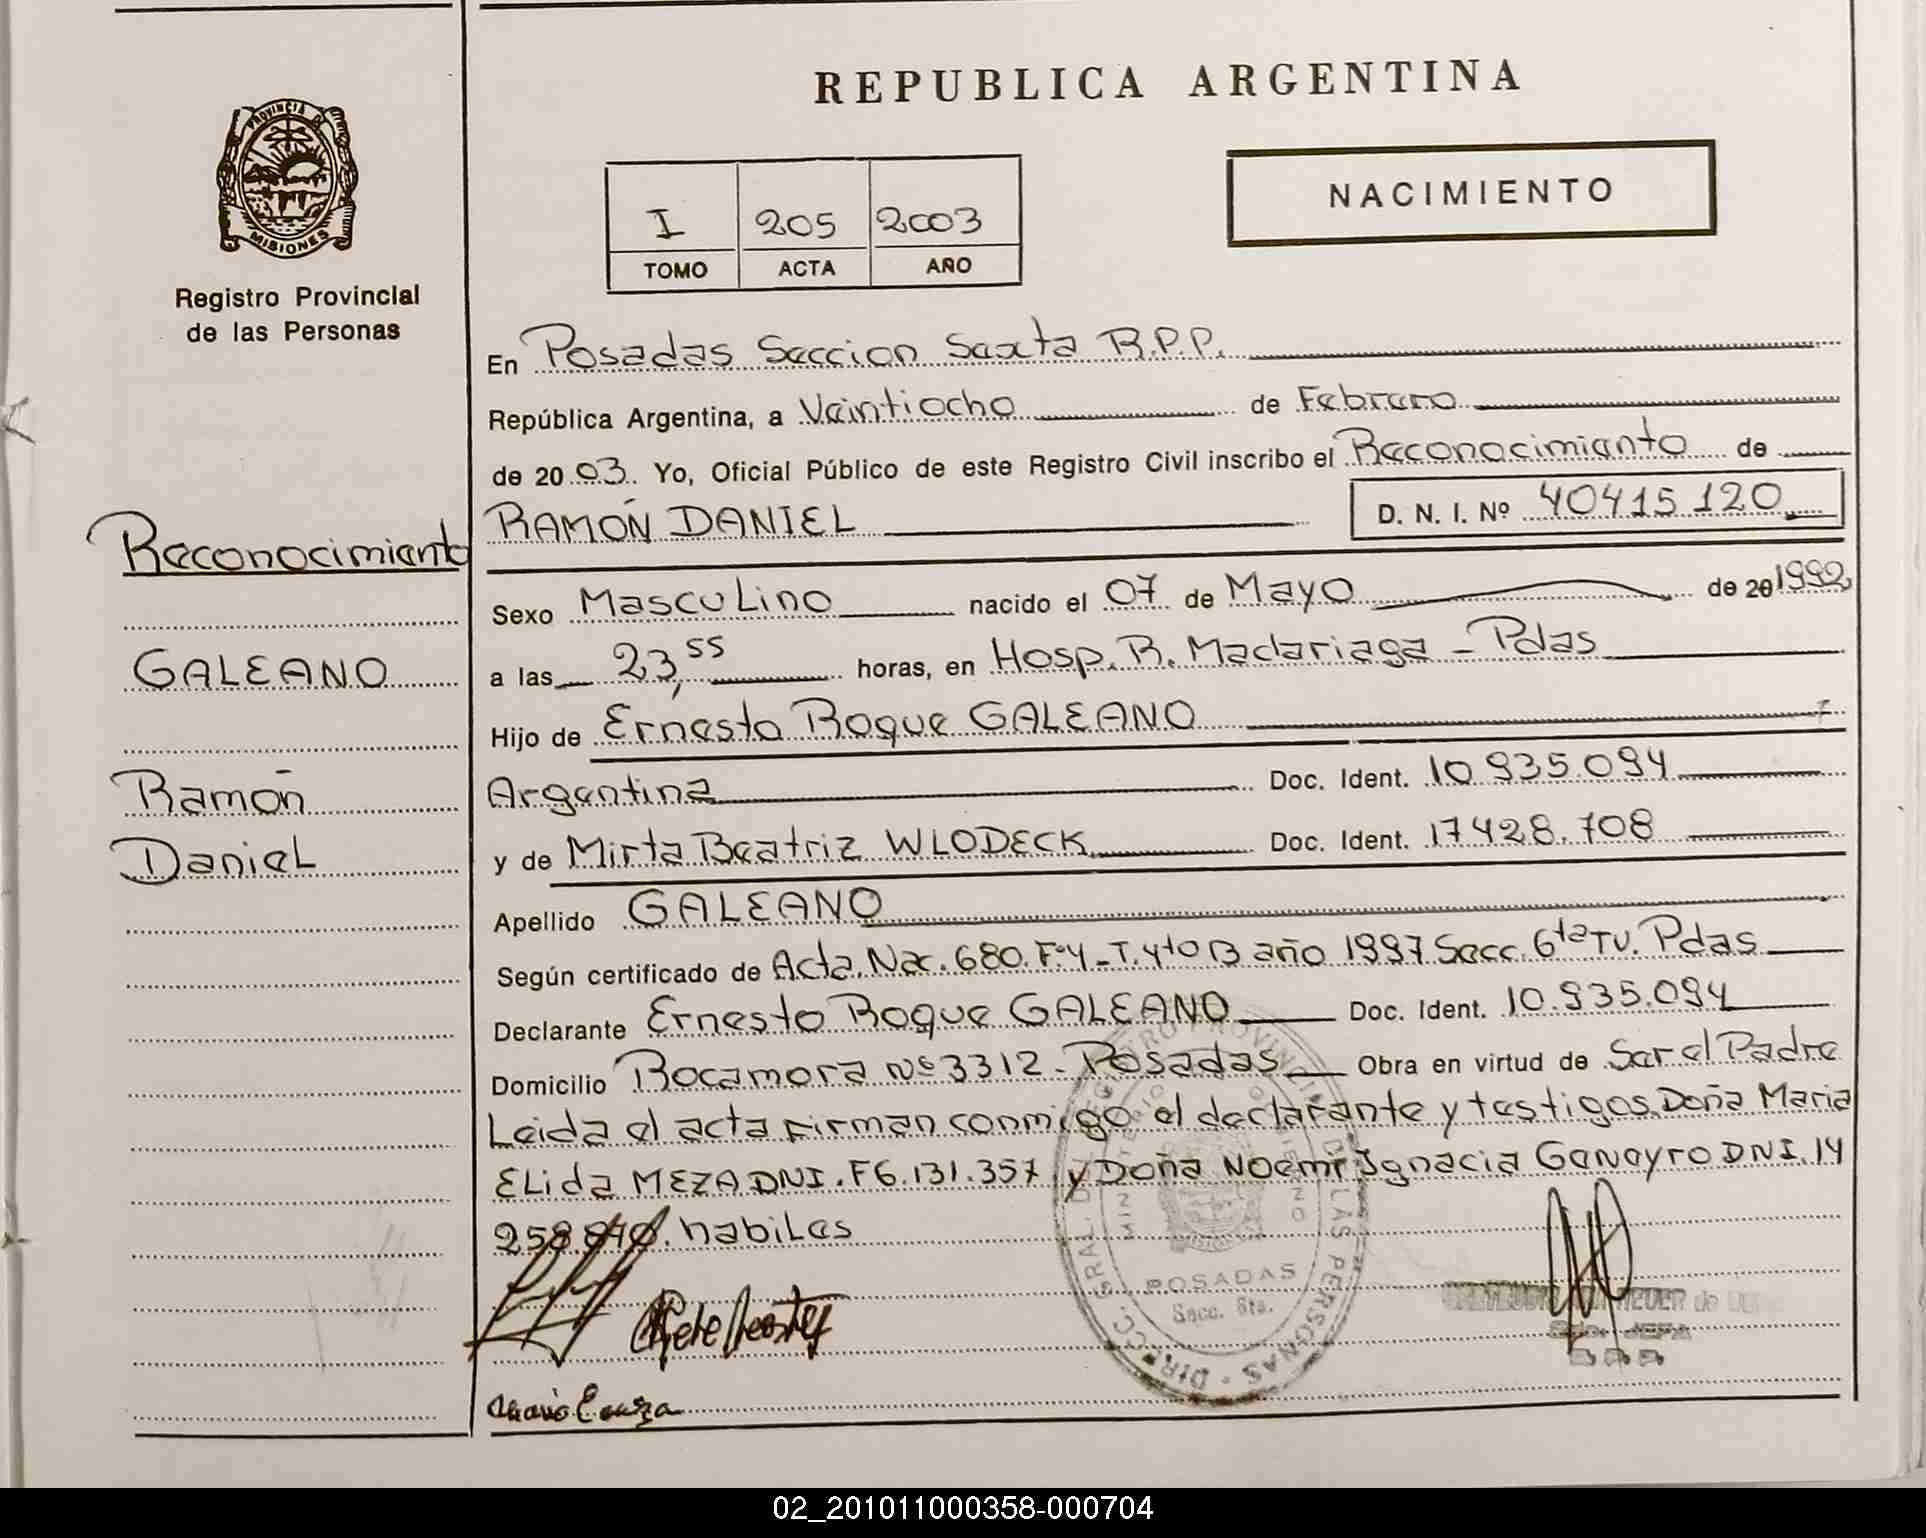 REPUBLICA ARGENTINA
PROVINCIA DE
MISIONES
Registro Provincial
de las Personas
I 205 2003
TOMO ACTA AÑO
NACIMIENTO
En Posadas Seccion Sexta R.P.P.
República Argentina, a Veintiocho de Febrero
de 2003. Yo, Oficial Público de este Registro Civil inscribo el Reconocimiento de
RAMÓN DANIEL D. N. I. Nº 40415120
Reconocimiento
GALEANO
Ramón
Daniel
Sexo Masculino nacido el 07 de Mayo de 20 1992
a las 23,55 horas, en Hosp. R. Madariaga - Pdas
Hijo de Ernesto Roque GALEANO
Argentina Doc. Ident. 10935.094
y de Mirta Beatriz WLODECK Doc. Ident. 17428.708
Apellido GALEANO
Según certificado de Acta. Nac. 680. Fº4 - T. 4to B año 1997 Secc. 6ta TV. Pdas
Declarante Ernesto Roque GALEANO Doc. Ident. 10.935.094
Domicilio Rocamora Nº 3312 - Posadas Obra en virtud de Ser el Padre
Leida el acta firman conmigo el declarante y testigos Doña Maria
Elida MEZA DNI. F6.131.357 y Doña Noemi Ignacia Ganayro DNI. 14
258. habiles
POSADAS
Secc. 6ta.
JEFA
02_201011000358-000704